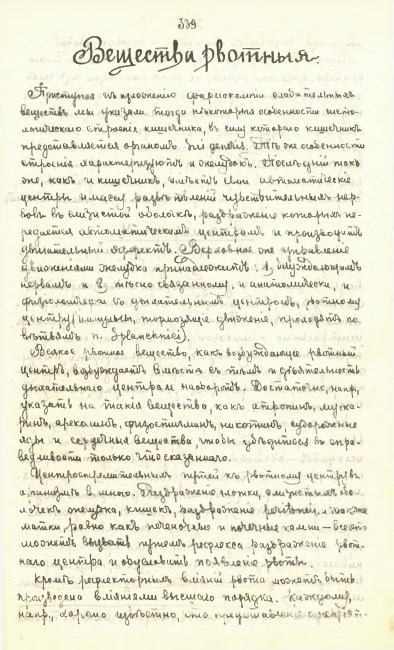 339
Вещества рвотныя.
Приступая къ изложенію фармакологіи слабительныхъ
веществъ мы указали тогда нѣкоторыя особенности гисто-
логическаго строенія кишечника, въ силу котораго кишечникъ
представляется органомъ sui generis. Тѣ же особенности
строенія характеризуютъ и желудокъ. Послѣдній такъ
же, какъ и кишечникъ, имѣетъ свои автоматическіе
центры и массу развѣтвленій чувствительныхъ нер-
вовъ въ слизистой оболочкѣ, раздраженіе которыхъ пе-
редается автоматическимъ центрамъ и производитъ
двигательный эффектъ. Верховное же управленіе
движеніями желудка принадлежитъ: 1) блуждающимъ
нервамъ и 2) тѣсно связанному, и анатомически, и
физіологически съ дыхательнымъ центромъ, рвотному
центру (импульсы, тормозящіе движеніе, проходятъ по
вѣтвямъ n. Splanchnici).
Всякое рвотное вещество, какъ возбуждающее рвотный
центръ, возбуждаетъ вмѣстѣ съ тѣмъ и дѣятельность
дыхательнаго центра и наоборотъ. Достаточно, напр.,
указать на такія вещества, какъ атропинъ, муска-
ринъ, ареколинъ, физостигминъ, никотинъ, судорожные
яды и сердечныя вещества, чтобы убѣдиться въ спра-
ведливости только что сказаннаго.
Центростремительныхъ путей къ рвотному центру въ
организмѣ много. Раздраженіе глотки, слизистыхъ обо-
лочекъ желудка, кишекъ, раздраженіе а также
матки, равно какъ печеночные и почечные камни – все это
можетъ вызвать путемъ рефлекса раздраженіе рвот-
наго центра и обусловить появленіе рвоты.
Кромѣ рефлекторныхъ вліяній рвота можетъ быть
произведена вліяніями высшаго порядка. Каждому,
напр., хорошо извѣстно, что представленіе о непріят-